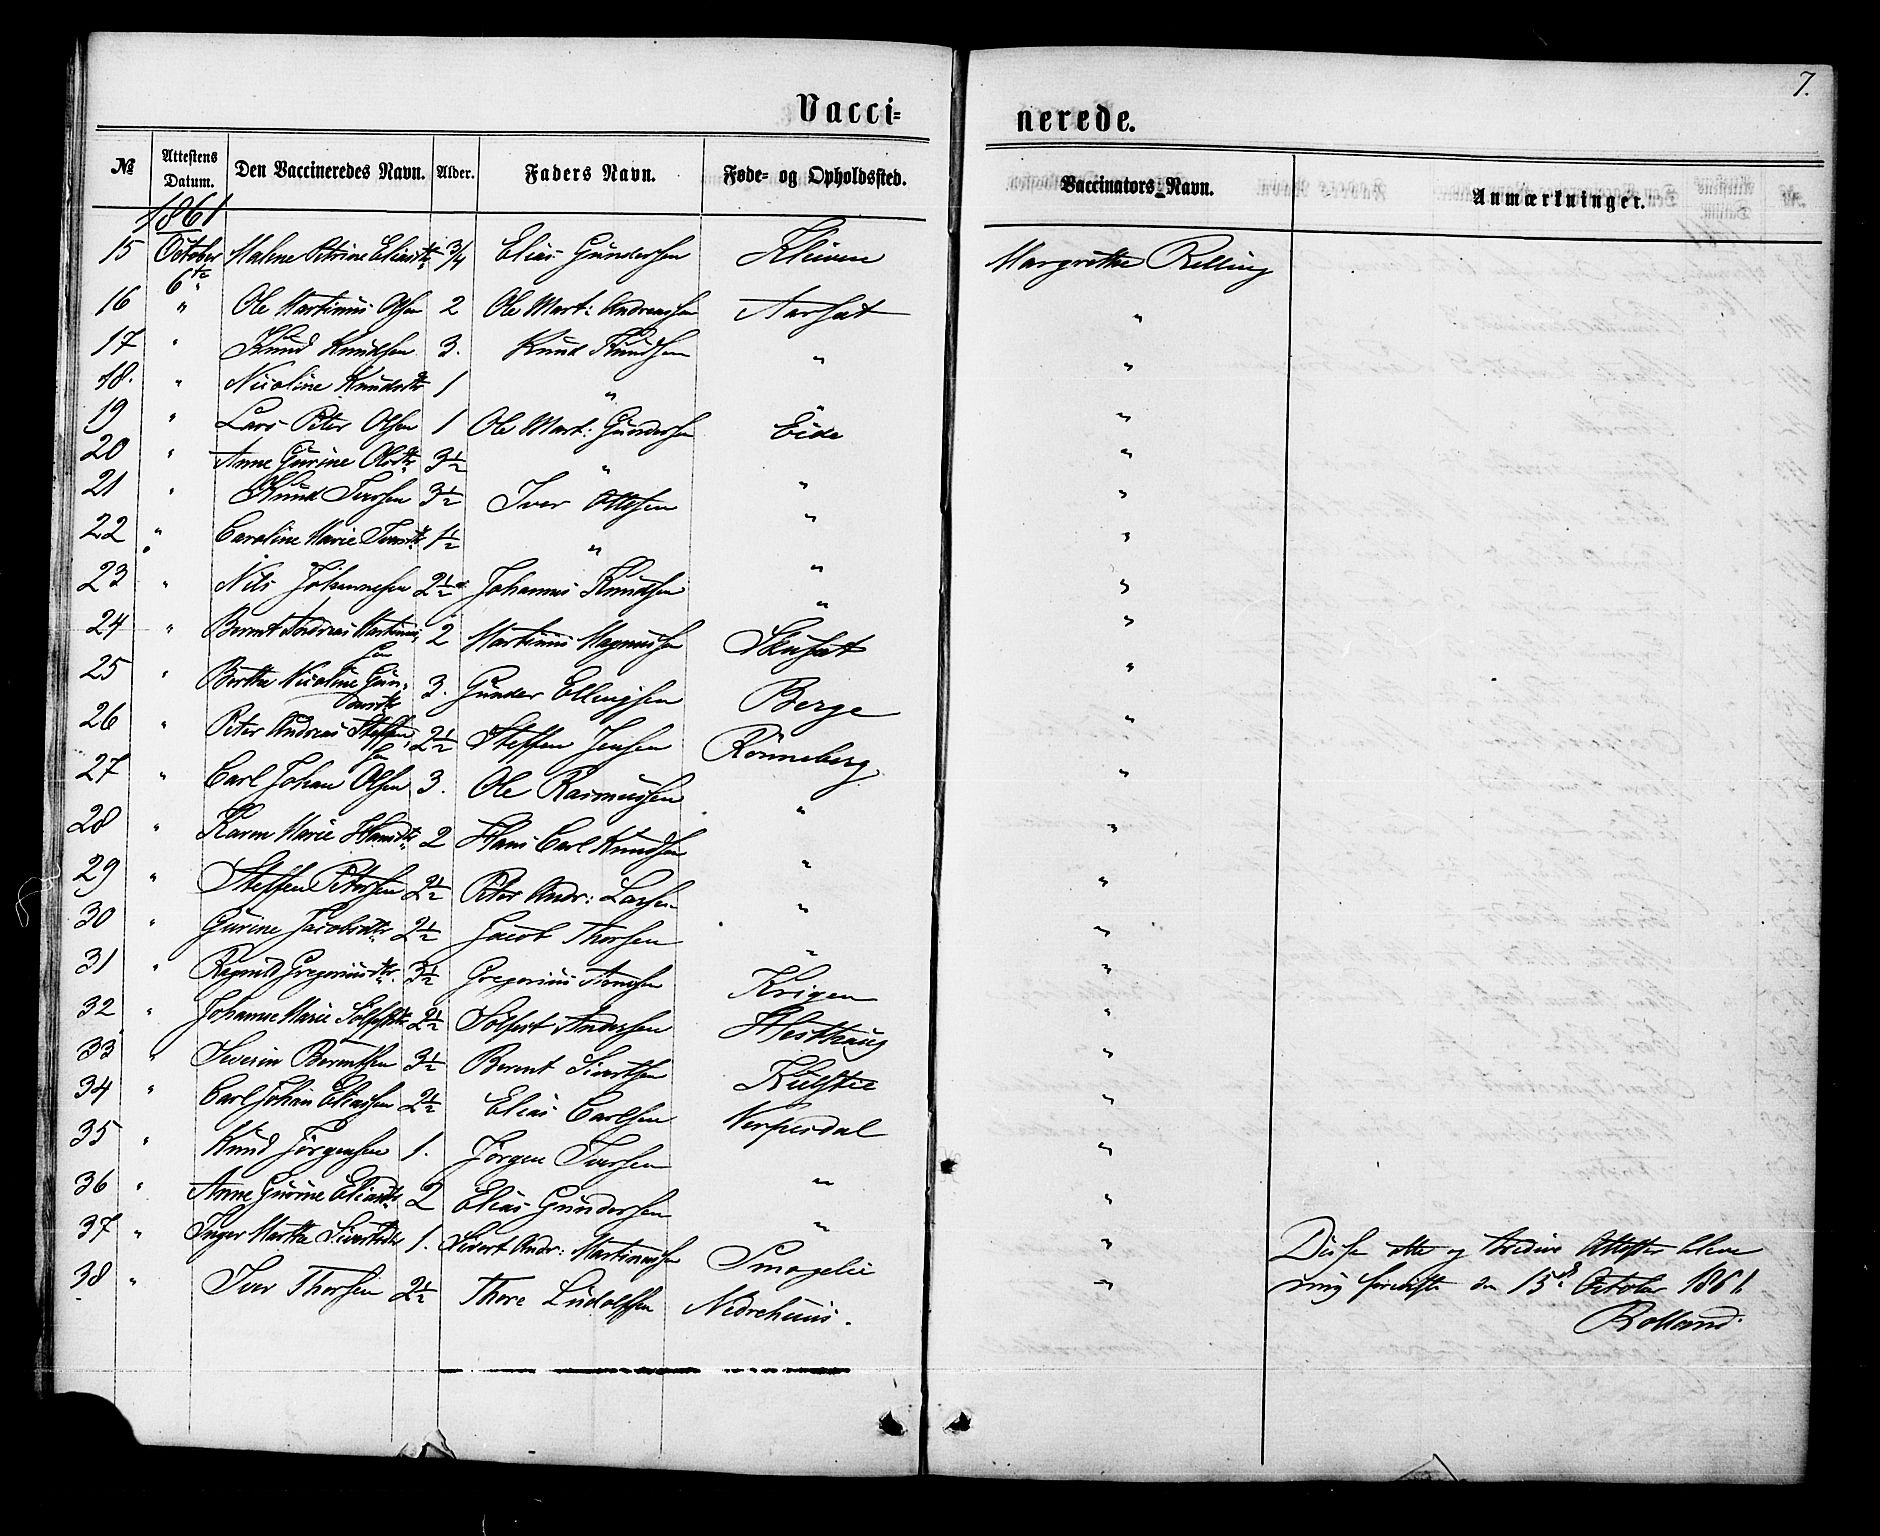 7.
Vacci= nerede.
№ Attestens Datum. Den Vaccineredes Navn. Alder. Faders Navn. Føde- og Opholdssted. Vaccinators Navn. Anmærkninger.
1861
15 October 6te Malene Petrine Eliasdtr. 3/4 Elias Gundersen Kleiven Margrethe Relling
16 " Ole Martinus Olsen 2 Ole Mart: Andreassen Aarsæt "
17 " Knud Knudsen 3. Knud Knudsen " "
18. " Nicoline Knudsdtr 1 " " "
19 " Lars Peter Olsen 1 Ole Mart: Gundersen Eide "
20 " Anne Gurine Olsdtr. 3½ " " "
21 " Knud Iversen 3½ Iver Ottesen " "
22 " Caroline Marie Iversdtr. 1½ " " "
23 " Nils Johannesen 2½ Johannes Knudsen " "
24 " Bernt Andreas Martinus- 2 Martinus Magnussen "
sen
25 " Berthe Nicoline Gun- 3. Gunder Ellingsen Berge "
dersdtr
26 " Peter Andreas Steffen- 2½ Steffen Jensen Rönneberg "
sen
27 " Carl Johan Olsen 3. Ole Rasmussen " "
28 " Karen Marie Hansdtr. 2 Hans Carl Knudsen " "
29 " Steffen Petersen 2½ Peter Andr: Larsen " "
30 " Gurine Jacobsdtr. 2½ Jacob Thorsen " "
31 " Ragnild Gregoriusdtr. 3½ Gregorius Krigen "
32 " Johanne Marie 2½ Sölfest Andersen Hesthaug "
33 " Severin Berentsen 3½ Berent Sivertsen "
34 " Carl Johan Eliassen 2½ Elias Carlsen "
35 " Knud Jörgensen 1. Jörgen Iversen " "
36 " Anne Gurine Eliasdtr. 2 Elias Gundersen " "
37 " Inger Marthe Sivertsdtr 1. Sivert Andr: Martinussen Smagelie "
38 " Iver Thorsen 2½ Thore Ludolfsen Nedrehuus. "
Disse otte og tredive Attester bleve
mig foreviste den 15de October 1861.
Rolland.